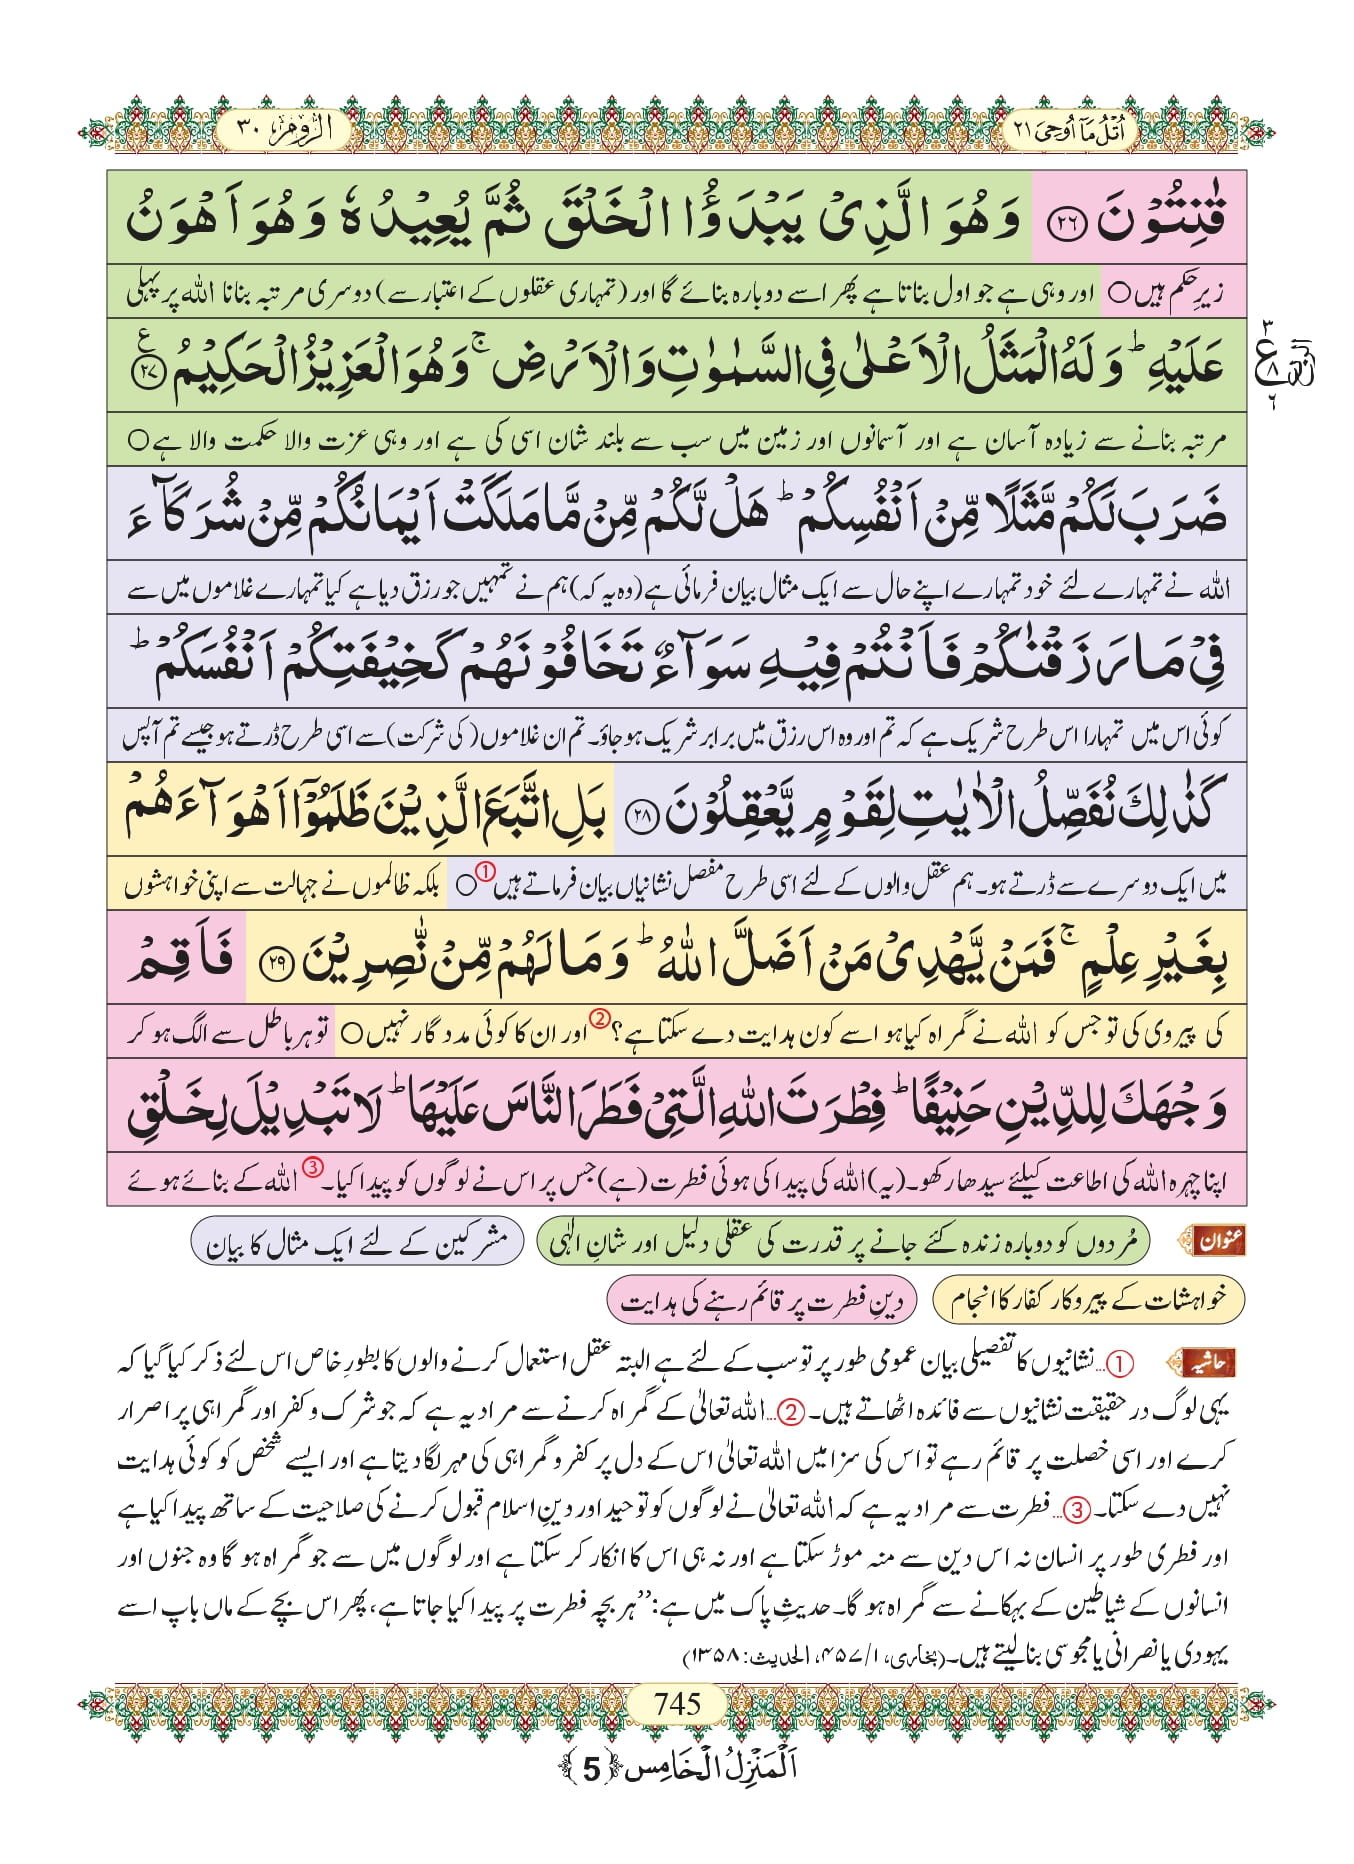 اُتْلُ مَآ اُوْحِیَ ۲۱
الرُّوْم ۳۰
قٰنِتُوْنَ ﴿۲۶﴾ وَ هُوَ الَّذِیْ یَبْدَؤُا الْخَلْقَ ثُمَّ یُعِیْدُهٗ وَ هُوَ اَهْوَنُ
زیرِ حکم ہیں○ اور وہی ہے جو اول بناتا ہے پھر اسے دوبارہ بنائے گا اور (تمہاری عقلوں کے اعتبار سے) دوسری مرتبہ بنانا اللہ پر پہلی
عَلَیْهِ ؕ وَ لَهُ الْمَثَلُ الْاَعْلٰى فِی السَّمٰوٰتِ وَ الْاَرْضِ ۚ وَ هُوَ الْعَزِیْزُ الْحَكِیْمُ ﴿۲۷﴾ ع
۳ ع ۸ ۶
مرتبہ بنانے سے زیادہ آسان ہے اور آسمانوں اور زمین میں سب سے بلند شان اسی کی ہے اور وہی عزت والا حکمت والا ہے○
ضَرَبَ لَكُمْ مَّثَلًا مِّنْ اَنْفُسِكُمْ ؕ هَلْ لَّكُمْ مِّنْ مَّا مَلَكَتْ اَیْمَانُكُمْ مِّنْ شُرَكَآءَ
اللہ نے تمہارے لئے خود تمہارے اپنے حال سے ایک مثال بیان فرمائی ہے (وہ یہ کہ) ہم نے تمہیں جو رزق دیا ہے کیا تمہارے غلاموں میں سے
فِیْ مَا رَزَقْنٰكُمْ فَاَنْتُمْ فِیْهِ سَوَآءٌ تَخَافُوْنَهُمْ كَخِیْفَتِكُمْ اَنْفُسَكُمْ ؕ
کوئی اس میں تمہارا اس طرح شریک ہے کہ تم اور وہ اس رزق میں برابر شریک ہو جاؤ۔ تم ان غلاموں (کی شرکت) سے اسی طرح ڈرتے ہو جیسے تم آپس
كَذٰلِكَ نُفَصِّلُ الْاٰیٰتِ لِقَوْمٍ یَّعْقِلُوْنَ ﴿۲۸﴾ بَلِ اتَّبَعَ الَّذِیْنَ ظَلَمُوْۤا اَهْوَآءَهُمْ
میں ایک دوسرے سے ڈرتے ہو۔ ہم عقل والوں کے لئے اسی طرح مفصل نشانیاں بیان فرماتے ہیں①○ بلکہ ظالموں نے جہالت سے اپنی خواہشوں
بِغَیْرِ عِلْمٍ ۚ فَمَنْ یَّهْدِیْ مَنْ اَضَلَّ اللّٰهُ ؕ وَ مَا لَهُمْ مِّنْ نّٰصِرِیْنَ ﴿۲۹﴾ فَاَقِمْ
کی پیروی کی تو جس کو اللہ نے گمراہ کیا ہو اسے کون ہدایت دے سکتا ہے؟② اور ان کا کوئی مددگار نہیں○ تو ہر باطل سے الگ ہو کر
وَجْهَكَ لِلدِّیْنِ حَنِیْفًا ؕ فِطْرَتَ اللّٰهِ الَّتِیْ فَطَرَ النَّاسَ عَلَیْهَا ؕ لَا تَبْدِیْلَ لِخَلْقِ
اپنا چہرہ اللہ کی اطاعت کیلئے سیدھا رکھو۔ (یہ) اللہ کی پیدا کی ہوئی فطرت (ہے) جس پر اس نے لوگوں کو پیدا کیا۔③ اللہ کے بنائے ہوئے
عنوان مُردوں کو دوبارہ زندہ کئے جانے پر قدرت کی عقلی دلیل اور شانِ الٰہی مشرکین کے لئے ایک مثال کا بیان
خواہشات کے پیروکار کفار کا انجام دینِ فطرت پر قائم رہنے کی ہدایت
حاشیہ ①... نشانیوں کا تفصیلی بیان عمومی طور پر تو سب کے لئے ہے البتہ عقل استعمال کرنے والوں کا بطورِ خاص اس لئے ذکر کیا گیا کہ
یہی لوگ در حقیقت نشانیوں سے فائدہ اٹھاتے ہیں۔ ②... اللہ تعالیٰ کے گمراہ کرنے سے مراد یہ ہے کہ جو شرک و کفر اور گمراہی پر اصرار
کرے اور اسی خصلت پر قائم رہے تو اس کی سزا میں اللہ تعالیٰ اس کے دل پر کفر و گمراہی کی مہر لگا دیتا ہے اور ایسے شخص کو کوئی ہدایت
نہیں دے سکتا۔ ③... فطرت سے مراد یہ ہے کہ اللہ تعالیٰ نے لوگوں کو توحید اور دینِ اسلام قبول کرنے کی صلاحیت کے ساتھ پیدا کیا ہے
اور فطری طور پر انسان نہ اس دین سے منہ موڑ سکتا ہے اور نہ ہی اس کا انکار کر سکتا ہے اور لوگوں میں سے جو گمراہ ہو گا وہ جنوں اور
انسانوں کے شیاطین کے بہکانے سے گمراہ ہو گا۔ حدیثِ پاک میں ہے: ’’ہر بچہ فطرت پر پیدا کیا جاتا ہے، پھر اس بچے کے ماں باپ اسے
یہودی یا نصرانی یا مجوسی بنا لیتے ہیں۔ (بخاری، ۱/۴۵۷، الحدیث: ۱۳۵۸)
745
اَلْمَنْزِلُ الْخَامِس ﴿5﴾